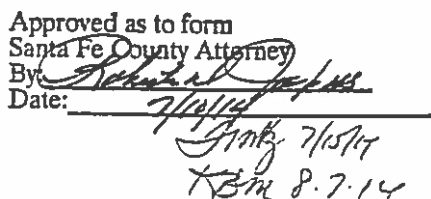 Approved as to form
Santa Fe County Attorney
By:
Date: 7/10/14
7/15/14
KBM 8.7.14